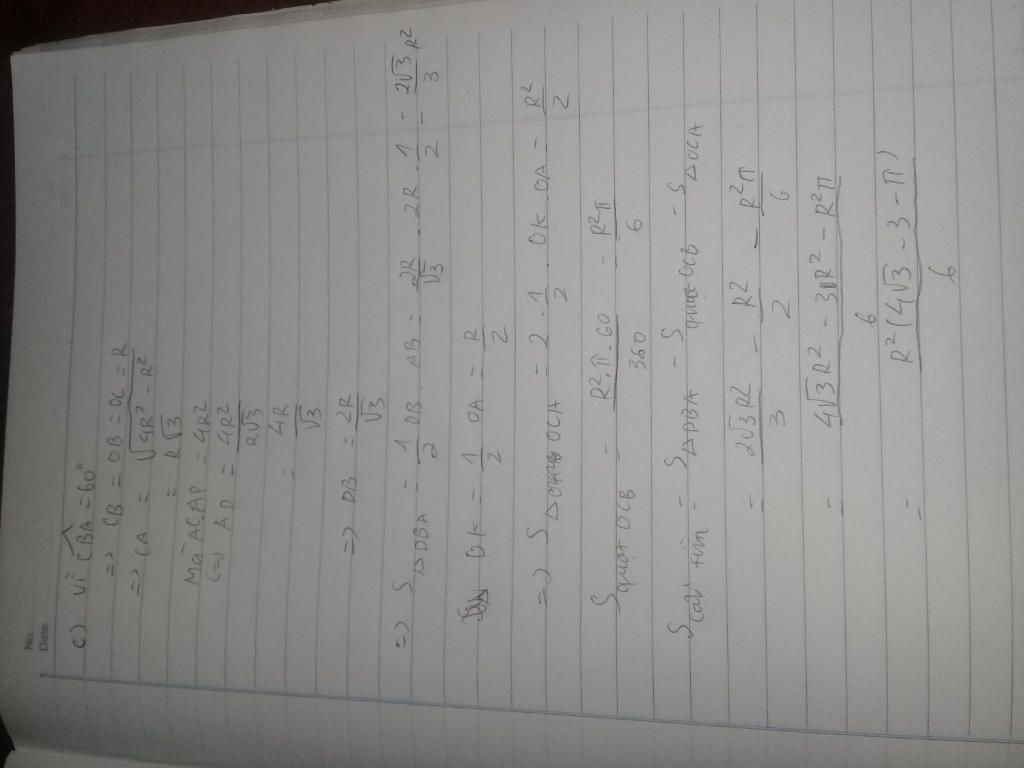 No.
Date
c) vì CBA = 60°
=> CB = OB = OC = R
=> CA = √(4R² - R²)
= R√3
Mà AC.AD = 4R2
(=) AD = 4R2/R√3
= 4R/√3
=> DB = 2R/√3
=> S ΔDBA = 1/2 DB. AB = 2R/√3 . 2R . 1/2 = 2√3/3 R²
OK = 1/2 OA = R/2
=> S ΔOCA = 2. 1/2 . OK. OA = R²/2
S quạt OCB = R².π.60/360 = R²π/6
S cần tìm = S ΔDBA - S quạt OCB - S ΔOCA
= 2√3R²/3 - R²/2 - R²π/6
= (4√3R² - 3R² - R²π)/6
= R²(4√3 - 3 - π)/6